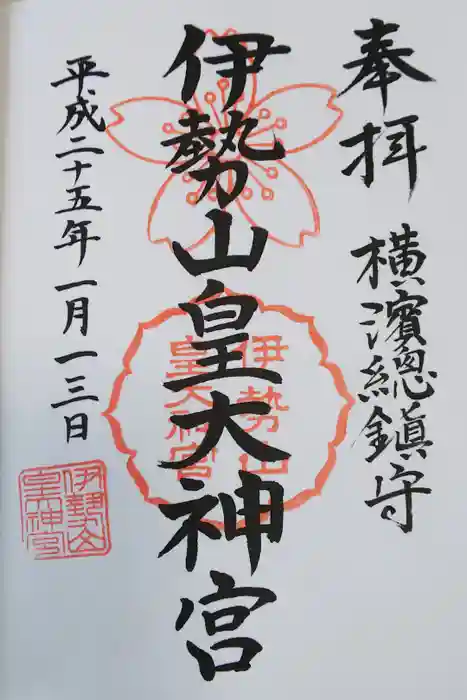 奉拝
横濱總鎮守
伊勢山皇大神宮
伊勢山
皇大神宮
平成二十五年一月一三日
伊勢山
皇神宮